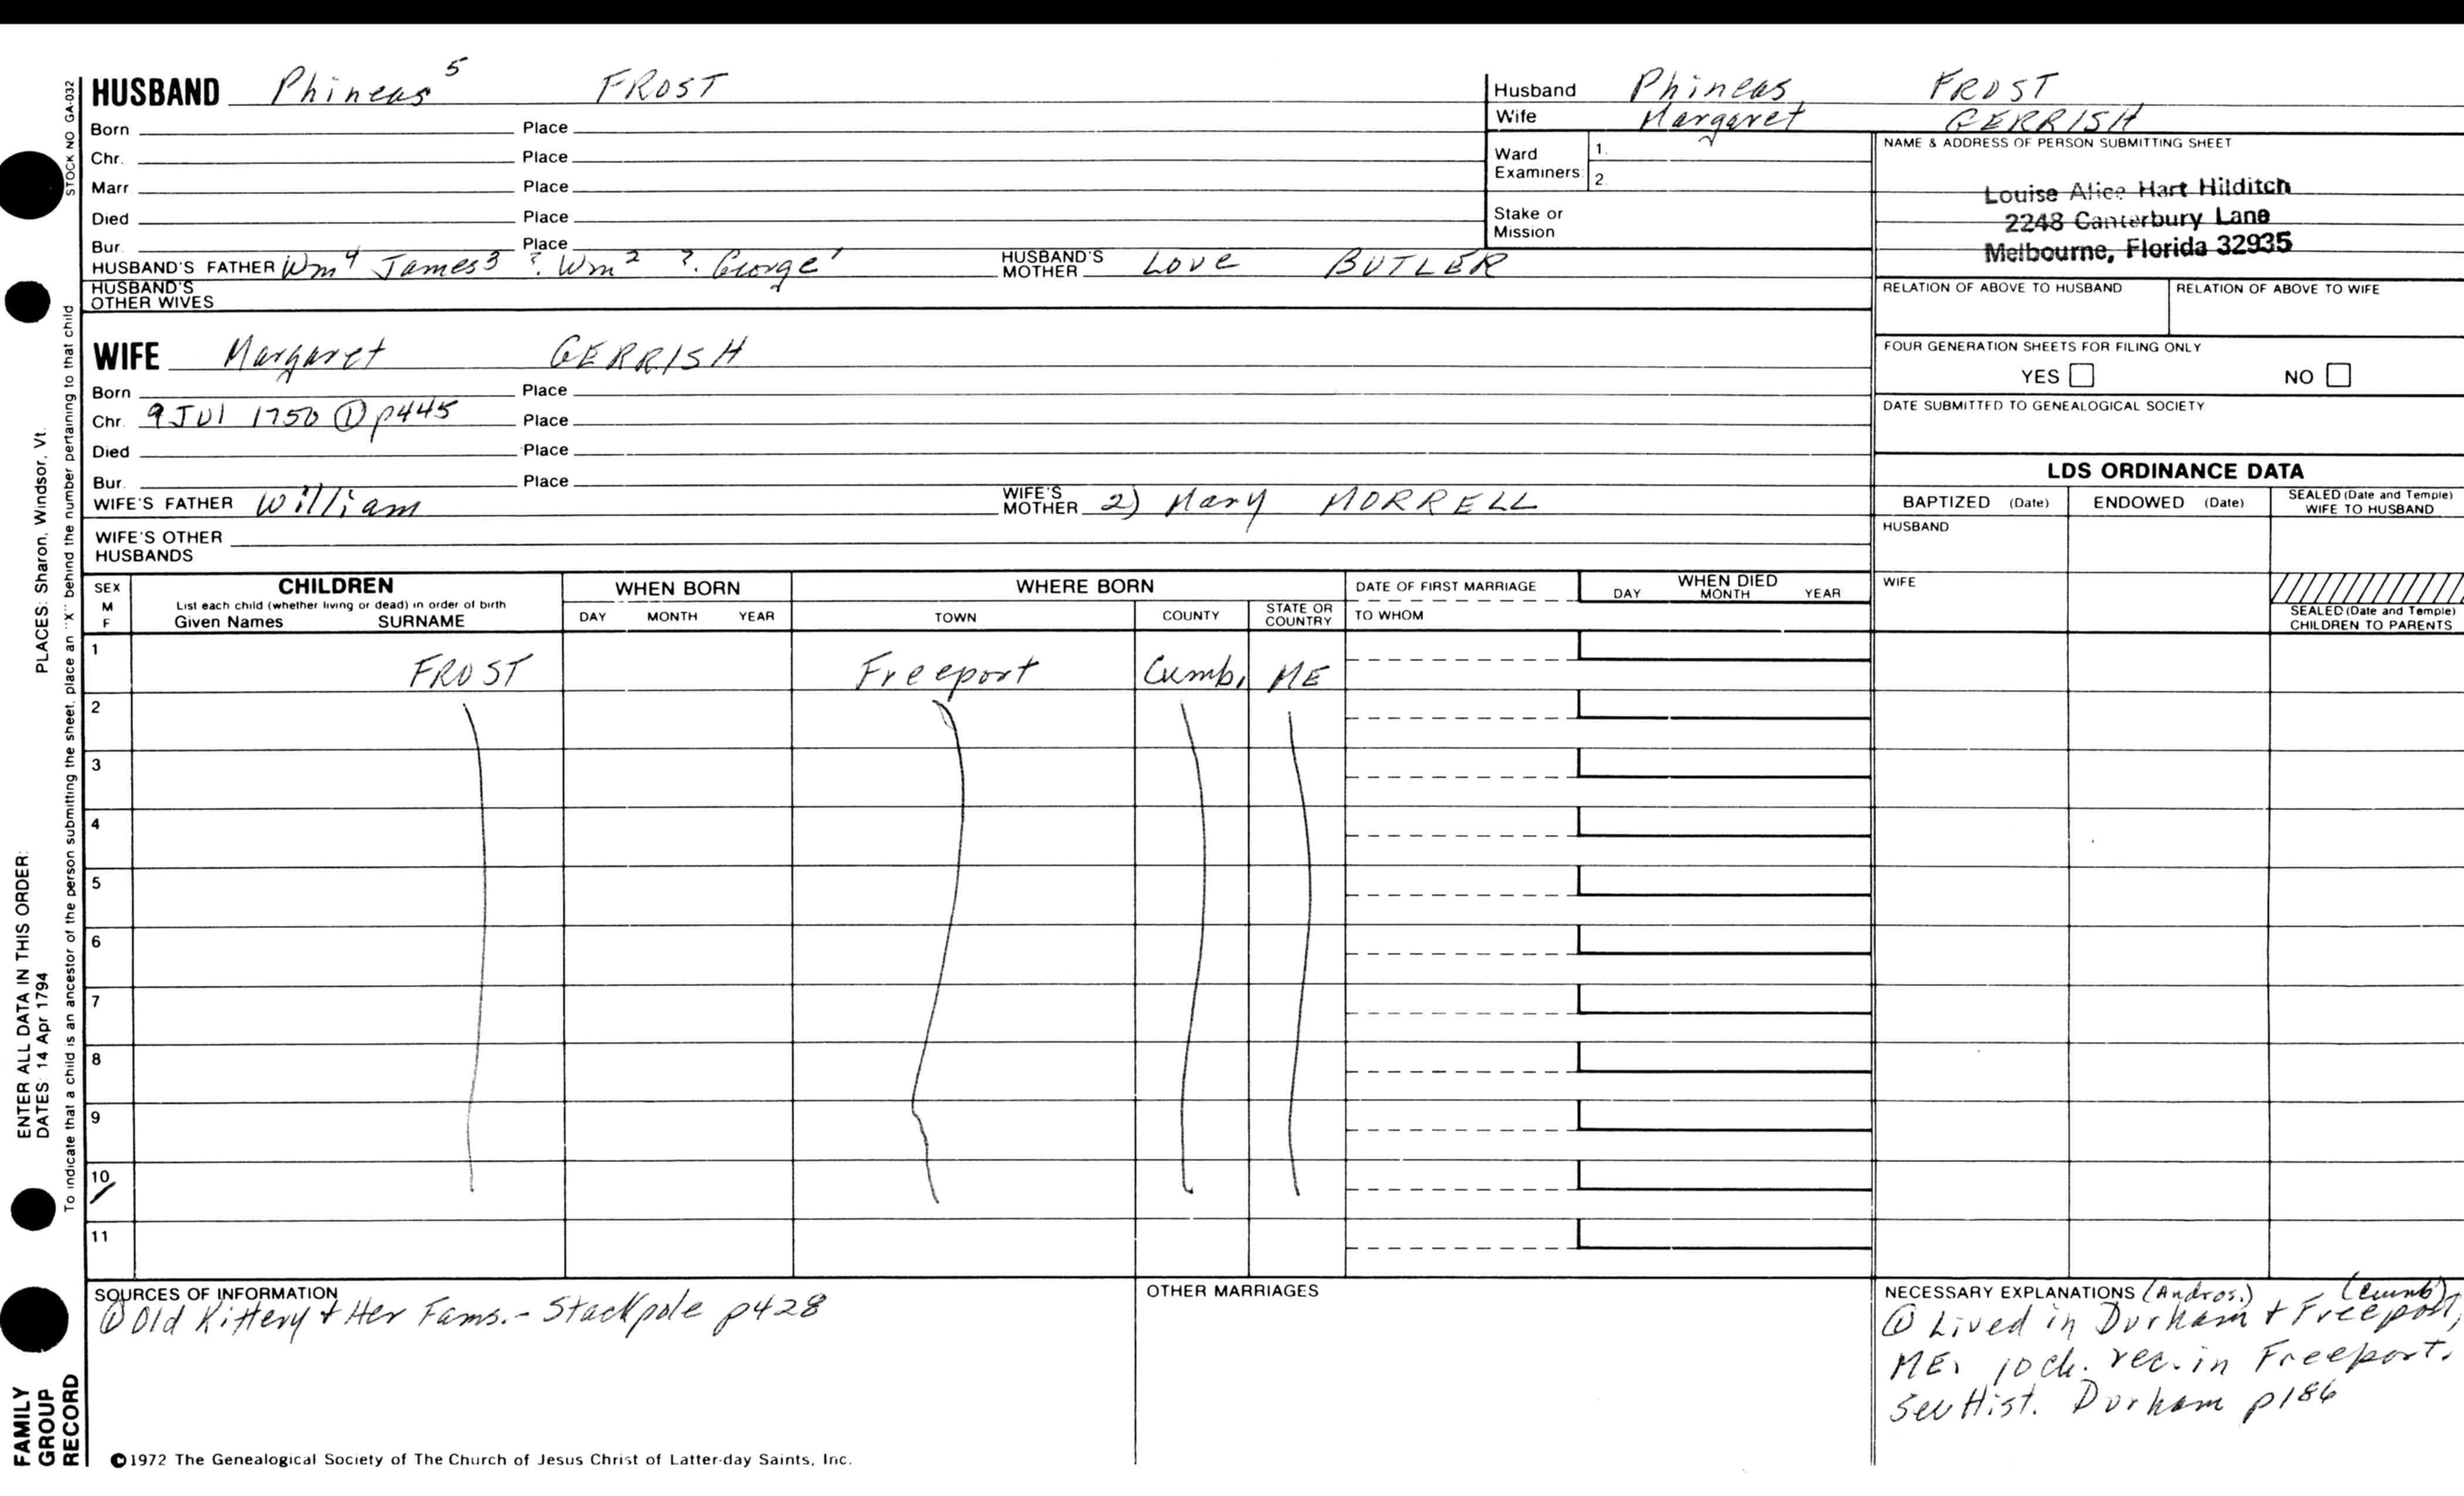 HUSBAND Phineas 5 FROST
Born Place
Chr. Place
Marr Place
Died Place
Bur. Place
HUSBAND'S FATHER Wm 4 James 3 ? Wm 2 ? George 1 HUSBAND'S MOTHER LOVE BUTLER
HUSBAND'S OTHER WIVES
WIFE Margaret GERRISH
Born Place
Chr. 9 JUl 1750 ① p445 Place
Died Place
Bur. Place
WIFE'S FATHER William WIFE'S MOTHER 2) Mary MORRELL
WIFE'S OTHER HUSBANDS
Husband Phineas FROST
Wife Margaret GERRISH
Ward Examiners 1.
2.
Stake or Mission
NAME & ADDRESS OF PERSON SUBMITTING SHEET
Louise Alice Hart Hilditch
2248 Canterbury Lane
Melbourne, Florida 32935
RELATION OF ABOVE TO HUSBAND RELATION OF ABOVE TO WIFE
FOUR GENERATION SHEETS FOR FILING ONLY
YES NO
DATE SUBMITTED TO GENEALOGICAL SOCIETY
LDS ORDINANCE DATA
BAPTIZED (Date) ENDOWED (Date) SEALED (Date and Temple) WIFE TO HUSBAND
HUSBAND
WIFE
SEALED (Date and Temple) CHILDREN TO PARENTS
SEX M F
CHILDREN
List each child (whether living or dead) in order of birth
Given Names SURNAME
WHEN BORN
DAY MONTH YEAR
WHERE BORN
TOWN COUNTY STATE OR COUNTRY
DATE OF FIRST MARRIAGE
TO WHOM
WHEN DIED
DAY MONTH YEAR
1 FROST Freeport Cumb, ME
2
3
4
5
6
7
8
9
10
11
SOURCES OF INFORMATION
① Old Kittery & Her Fams. - Stackpole p428
OTHER MARRIAGES
NECESSARY EXPLANATIONS (Andros.) (Cumb)
① Lived in Durham & Freeport,
ME. 10 ch. rec. in Freeport.
See Hist. Durham p186
©1972 The Genealogical Society of The Church of Jesus Christ of Latter-day Saints, Inc.
STOCK NO GA-032
PLACES: Sharon, Windsor, Vt.
To indicate that a child is an ancestor of the person submitting the sheet, place an "X" behind the number pertaining to that child
ENTER ALL DATA IN THIS ORDER:
DATES: 14 Apr 1794
FAMILY
GROUP
RECORD